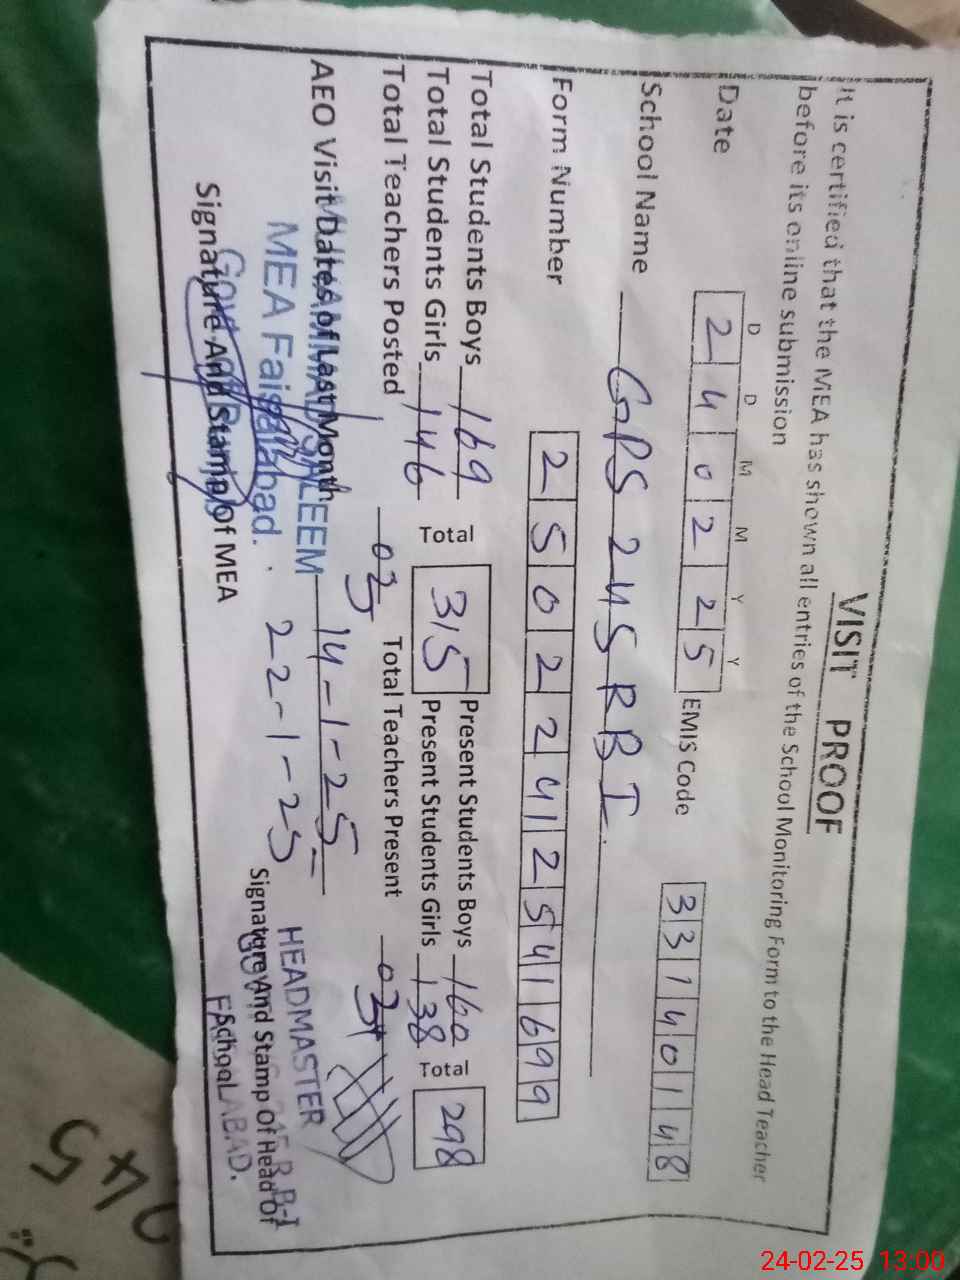 VISIT PROOF
It is certified that the MEA has shown all entries of the School Monitoring Form to the Head Teacher
before its online submission
D D M M Y Y
Date 2 4 0 2 2 5 EMIS Code 3 3 1 4 0 1 4 8
School Name GPS 245 RB I
Form Number 2 5 0 2 2 4 1 2 5 4 1 6 9 9
Total Students Boys 169 Total 315 Present Students Boys 160 Total 298
Total Students Girls 146 Present Students Girls 138
Total Teachers Posted 03 Total Teachers Present 03
AEO Visit Dates of Last Month 14-1-25
22-1-25
SALEEM
MEA Faisalabad.
Signature And Stamp of MEA
HEADMASTER
Signature And Stamp Of Head Of
School
245 R.B-I
FAISALABAD.
245
24-02-25 13:00